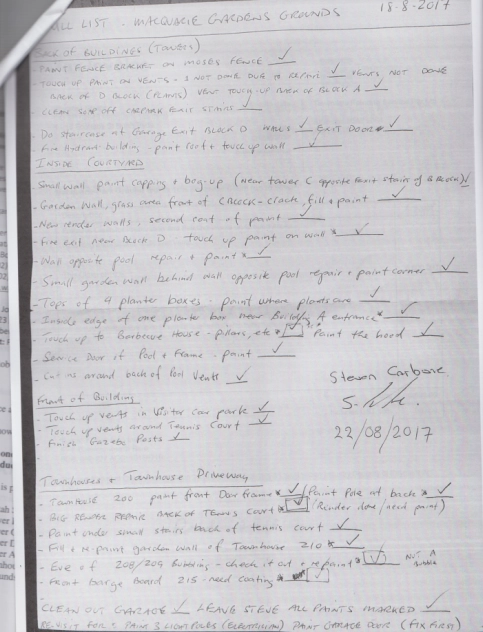 ALL LIST - MACQUARIE GARDENS GROUNDS 18-8-2017
BACK OF BUILDINGS (TOWERS)
- PAINT FENCE BRACKET ON MOSES FENSE ✓
- TOUCH UP PAINT ON VENTS - 3 NOT DONE DUE TO REPAIR ✓ VENTS NOT DONE
BACK OF D BLOCK (PLANTS) VENT TOUCH-UP BACK OF BLOCK A ✓
- CLEAN OFF CARPARK EXIT STAIRS ✓
- Do staircase at Garage Exit BLOCK D WALLS ✓ EXIT DOOR ✓
- Fire Hydrant building - paint roof + touch up wall ✓
INSIDE COURTYARD
- Small wall paint capping + bog-up (Near tower C opposite exit stairs of B BLOCK) ✓
- Garden Wall, grass area front of C BLOCK - crack, fill + paint ✓
- New render walls, second coat of paint ✓
- Fire exit near Block D touch up paint on wall * ✓
- Wall opposite pool repair + paint * ✓
- Small garden wall behind wall opposite pool repair + paint corner ✓
- Tops of 4 planter boxes - paint where plants are ✓
- Inside edge of one planter box near Building A entrance * ✓
- Touch up to Barbecue House - pillars, etc * ✓ Paint the hood ✓
- Service Door of Pool + Frame - paint ✓
- Cut in around back of Pool Vents ✓
Steven Carbone
Front of Building
- Touch up vents in Visitor car park ✓
- Touch up vents around Tennis Court ✓
- Finish Gazebo Posts ✓
22/08/2017
Townhouses + Townhouse Driveway
- TOWNHOUSE 200 paint front Door frame * ✓ / Paint Pole at back * ✓
- BIG RENDER REPAIR BACK OF TENNIS COURT * ✓ (Render done / need paint)
- Paint under small stairs back of tennis court ✓
- Fill + re-paint garden wall of Townhouse 210 * ✓
- Eve of 208/209 Building - check it out + repaint * ✓
- Front barge Board 215 - need coating * ✓
CLEAN OUT GARAGE ✓ LEAVE STEVE ALL PAINTS MARKED ✓
PAINT 3 LIGHT POLES (ELECTRICIAN) PAINT GARAGE DOOR (FIX FIRST)